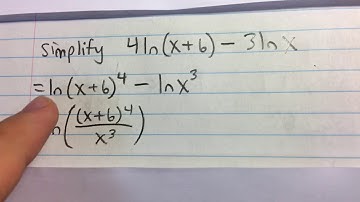 simplify 4ln(x+6) - 3lnx
= ln(x+6)⁴ - lnx³
n((x+6)⁴/x³)